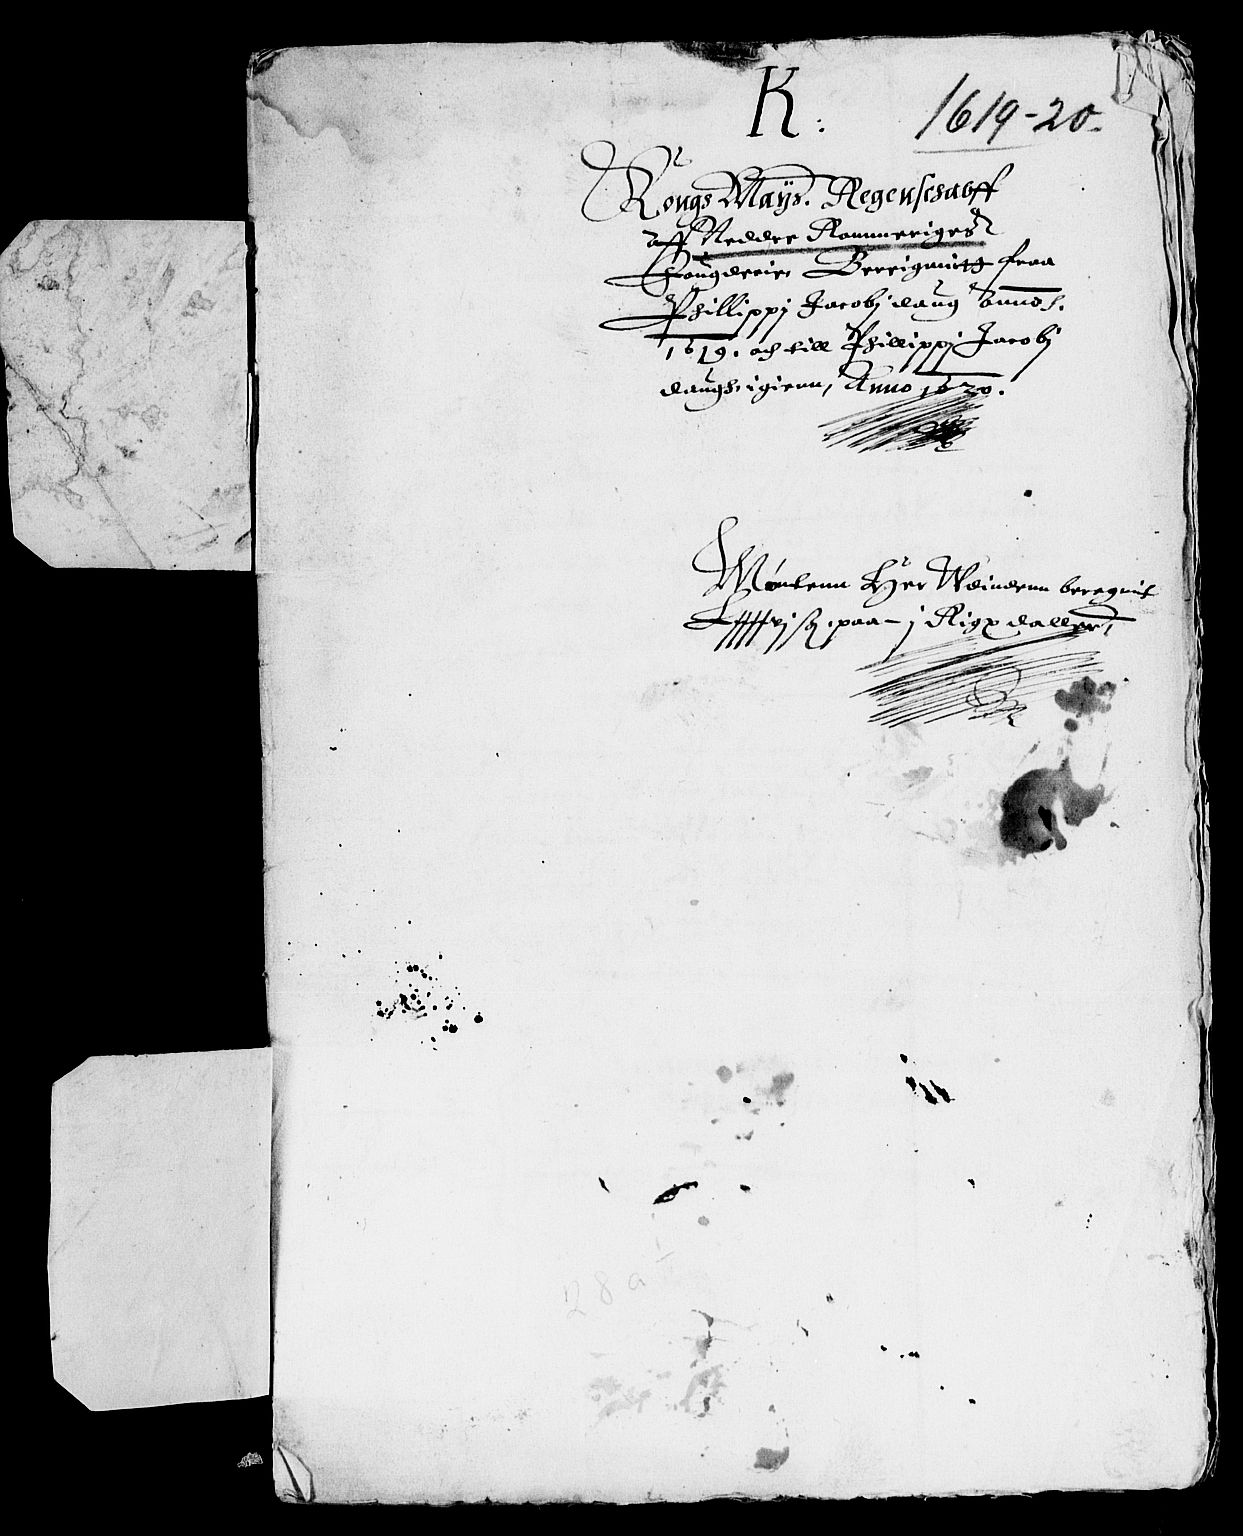 K:
1619-20.
Kongs Mayß. Regenschabff
aff Neddre Rommeriges
fougderie, Berignitt fraa
Phillippj Jacobj daug annos.
1619. och till Phillippj Jacobj
daugh igienn, Anno 1620.
Møntenn Her Udindenn beregnit
paa j Rigx daller,
28a